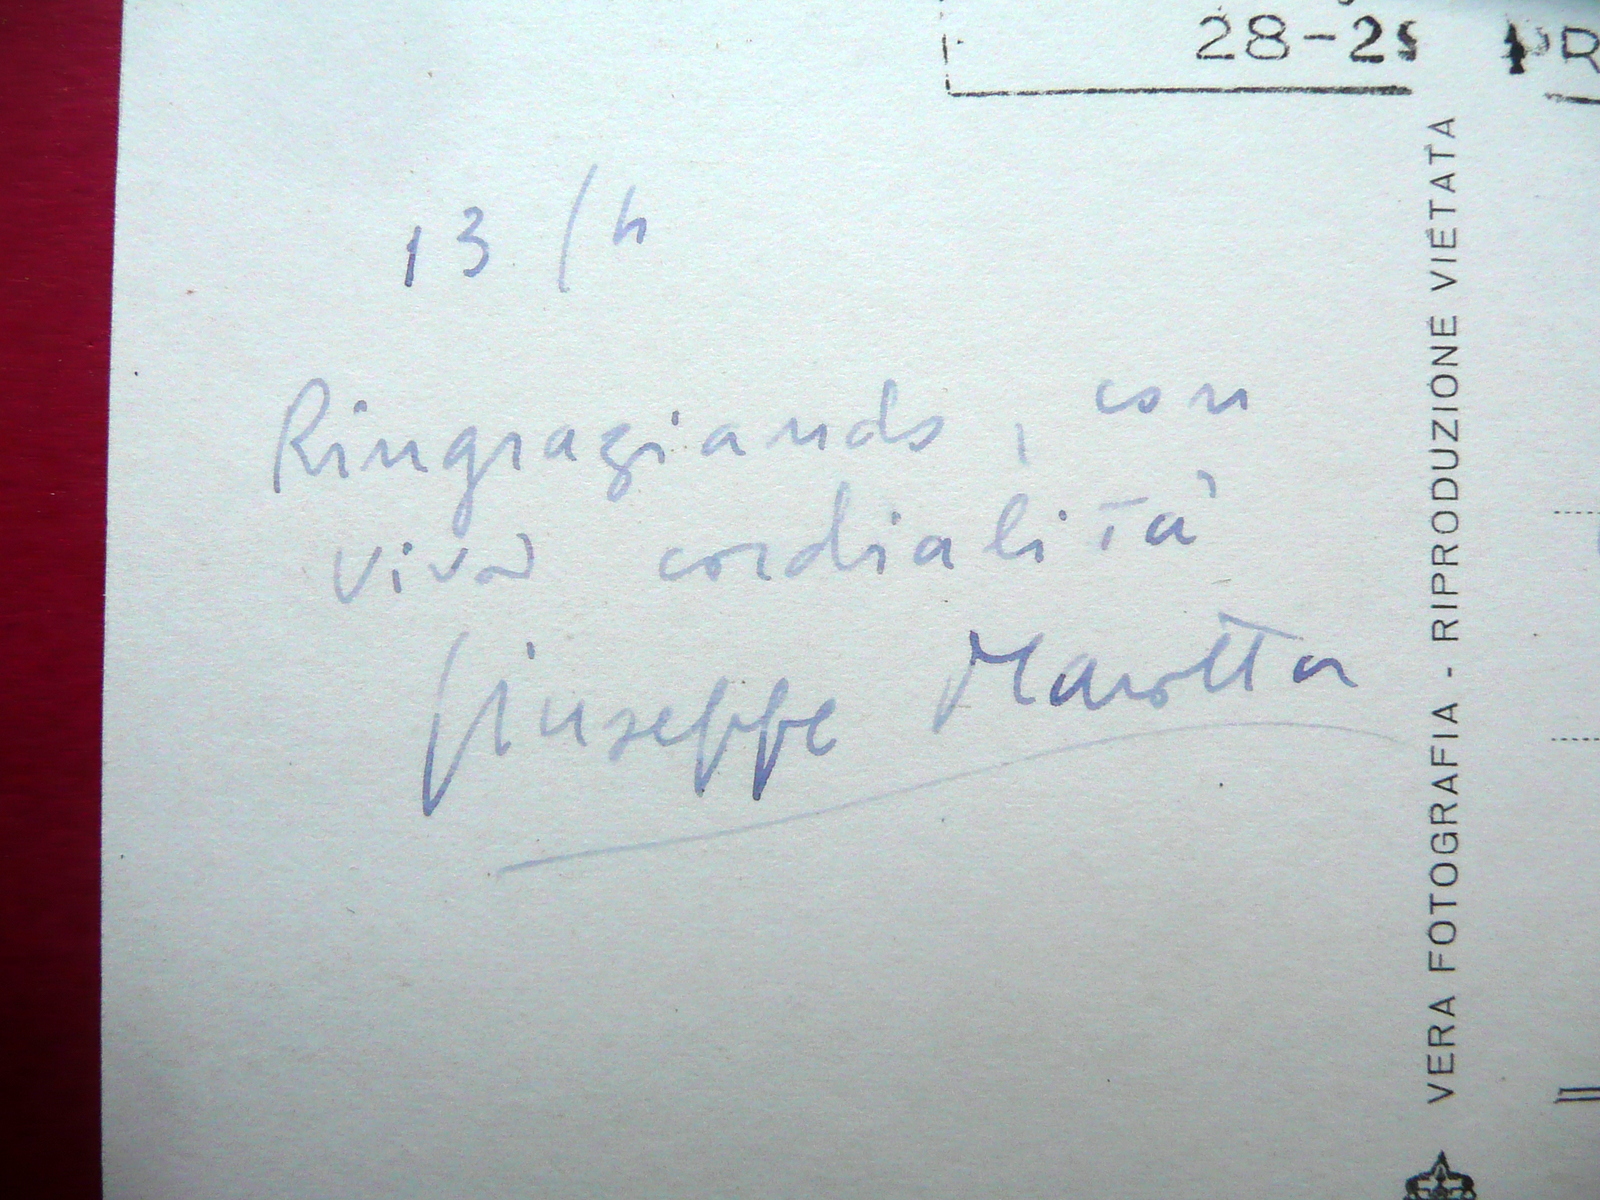 28-29 APR
13/4
Ringraziando, con
viva cordialità
Giuseppe Marotta
VERA FOTOGRAFIA - RIPRODUZIONE VIETATA